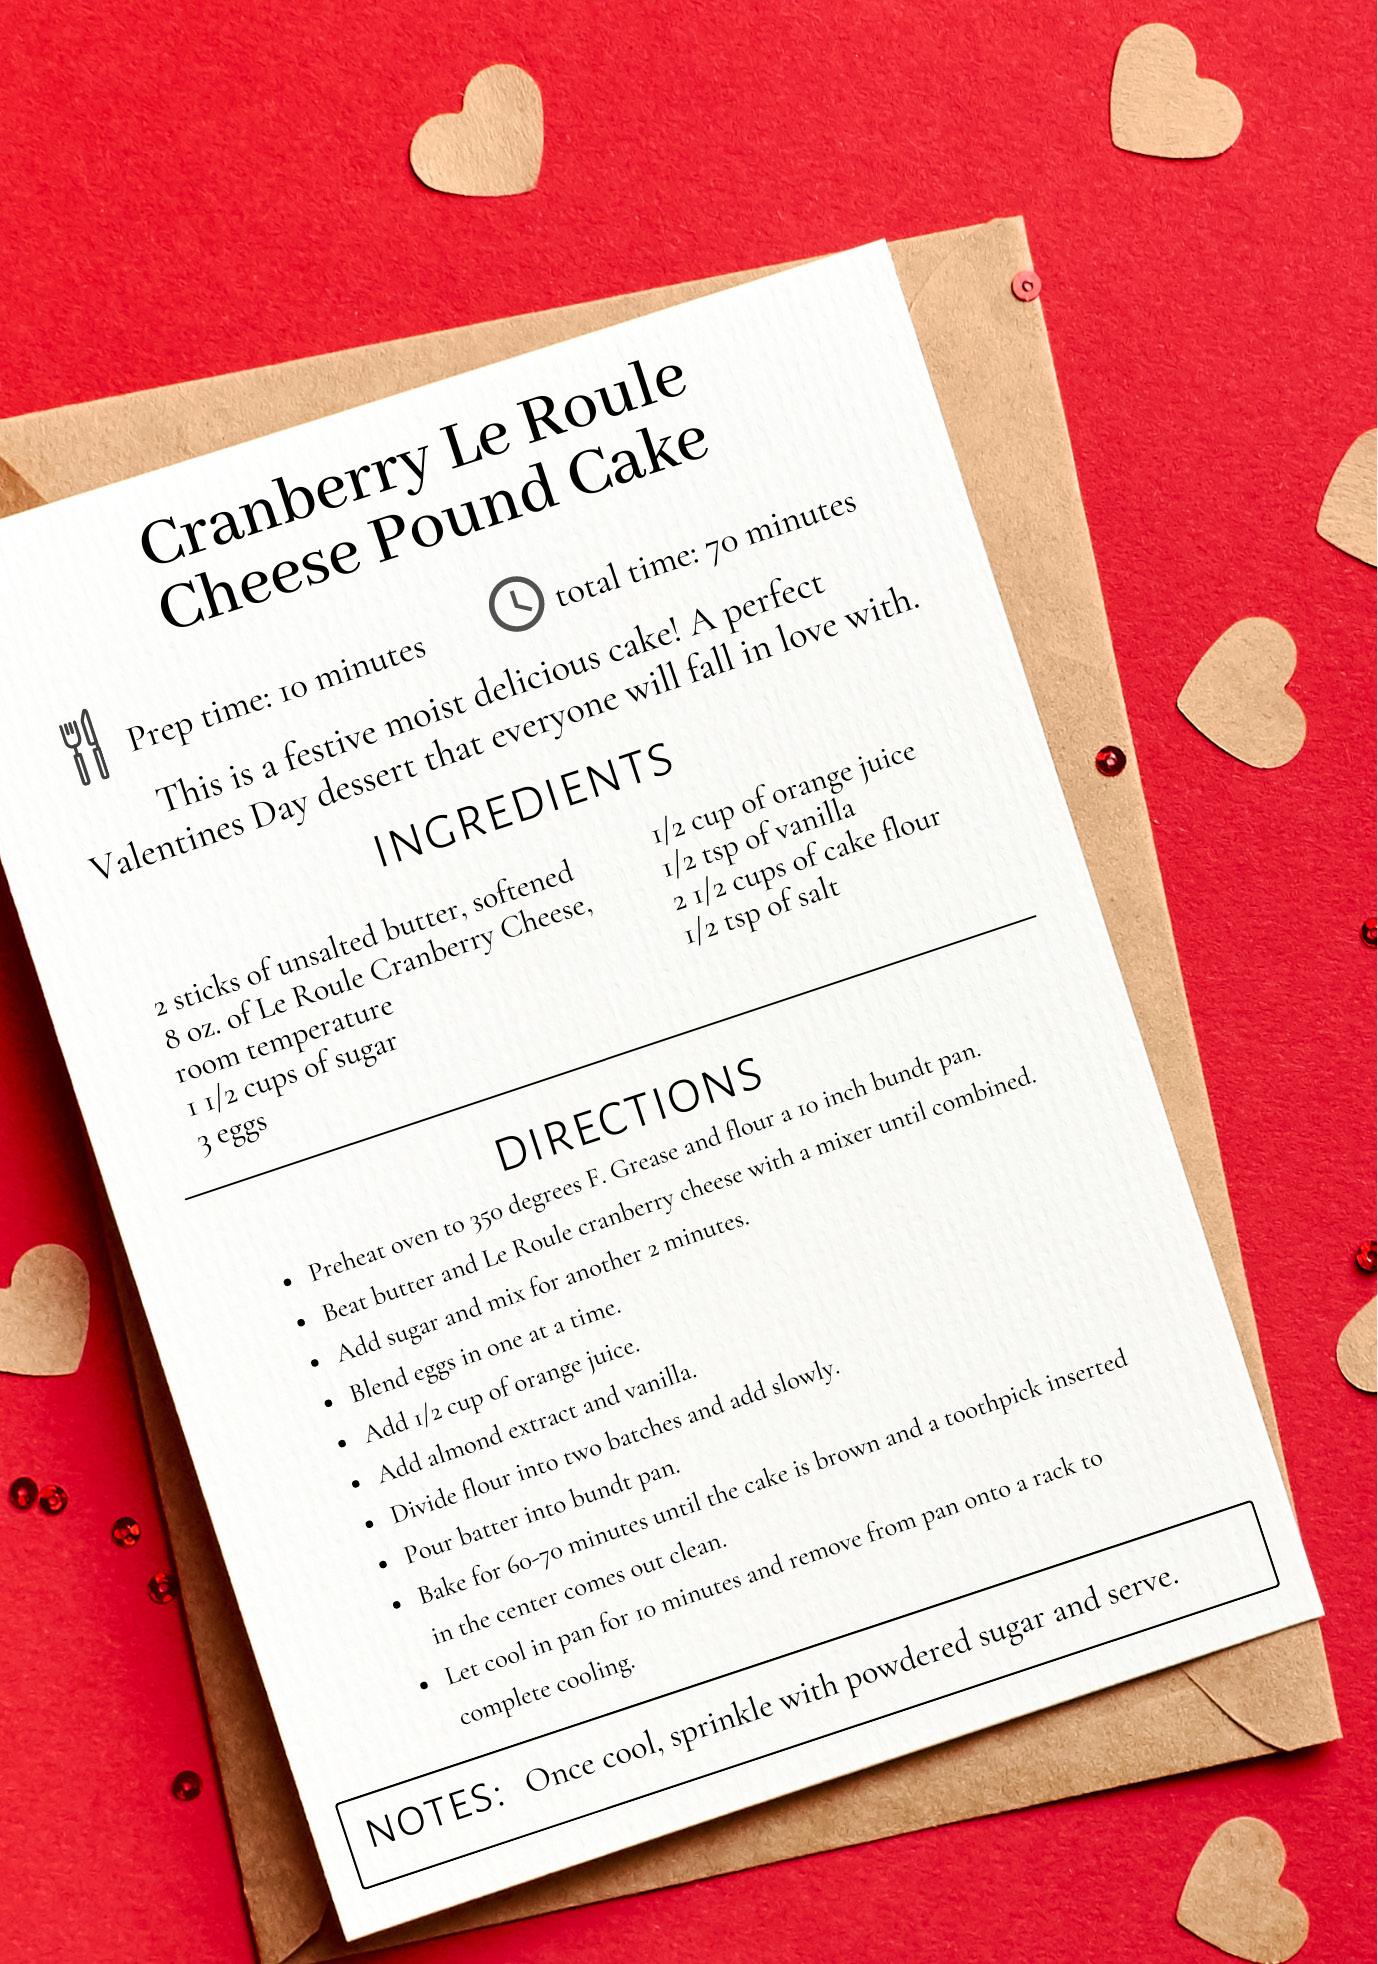 Cranberry Le Roule
Cheese Pound Cake
Prep time: 10 minutes
total time: 70 minutes
This is a festive moist delicious cake! A perfect
Valentines Day dessert that everyone will fall in love with.
INGREDIENTS
2 sticks of unsalted butter, softened
8 oz. of Le Roule Cranberry Cheese,
room temperature
1 1/2 cups of sugar
3 eggs
1/2 cup of orange juice
1/2 tsp of vanilla
2 1/2 cups of cake flour
1/2 tsp of salt
DIRECTIONS
• Preheat oven to 350 degrees F. Grease and flour a 10 inch bundt pan.
• Beat butter and Le Roule cranberry cheese with a mixer until combined.
• Add sugar and mix for another 2 minutes.
• Blend eggs in one at a time.
• Add 1/2 cup of orange juice.
• Add almond extract and vanilla.
• Divide flour into two batches and add slowly.
• Pour batter into bundt pan.
• Bake for 60-70 minutes until the cake is brown and a toothpick inserted
in the center comes out clean.
• Let cool in pan for 10 minutes and remove from pan onto a rack to
complete cooling.
NOTES: Once cool, sprinkle with powdered sugar and serve.